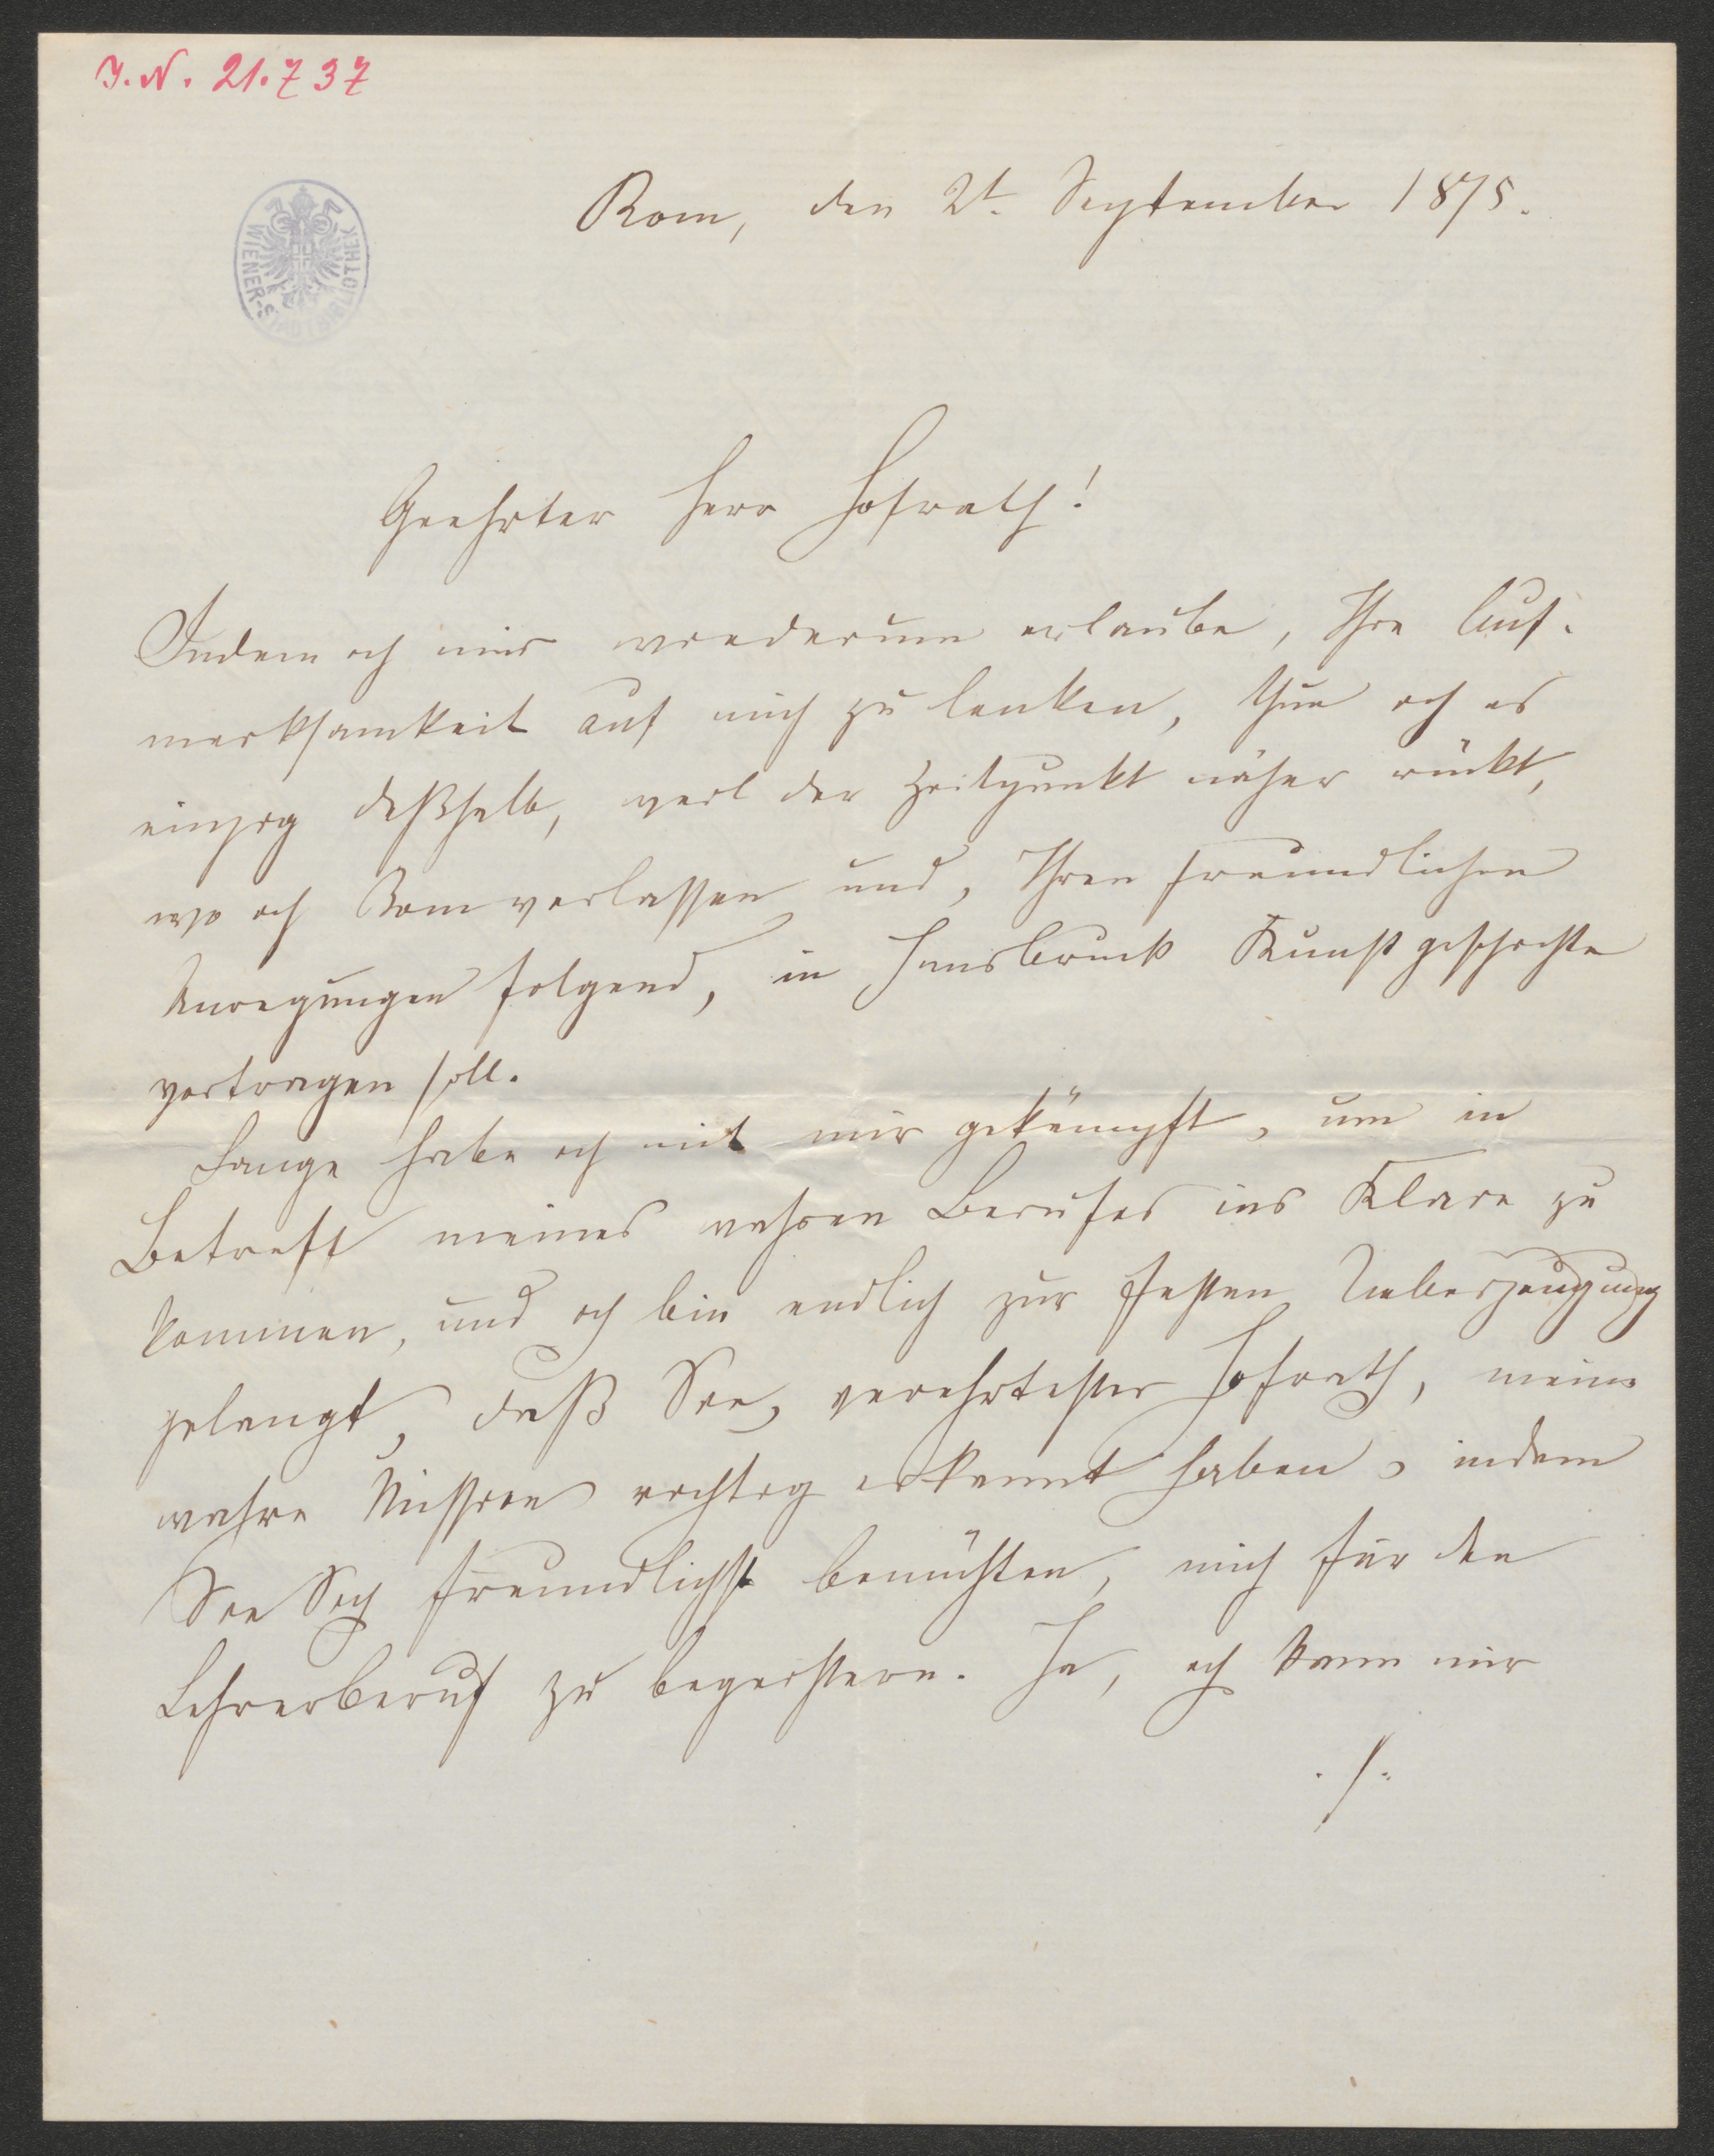 I. N. 21.737
WIENER-STADTBIBLIOTHEK
Rom, den 2t. September 1875.
Geehrter Herr Hofrath!
Indem ich mir wiederum erlaube, Ihre Auf-
merksamkeit auf mich zu lenken, thue ich es
einzig deßhalb, weil der Zeitpunkt näher rückt,
wo ich Rom verlassen und, Ihren freundlichen
Anregungen folgend, in Innsbruck Kunstgeschichte
vortragen soll.
Lange habe ich mit mir gekämpft, um in
Betreff meines wahren Berufes ins Klare zu
kommen, und ich bin endlich zur festen Ueberzeugung
gelangt, daß Sie, verehrtester Hofrath, meine
wahre Mission richtig erkannt haben, indem
Sie Sich freundlichst bemühten, mich für den
Lehrerberuf zu begeistern. Ja, ich kann mir
./.